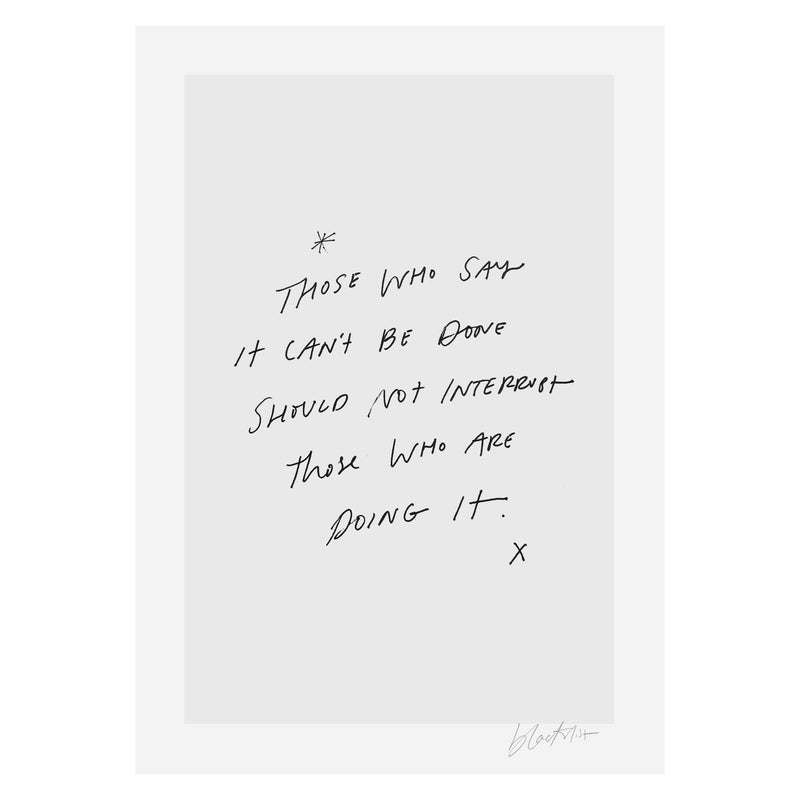 *
THOSE WHO SAY
It CAN't BE DONE
SHOULD NOt INTERRUPt
those WHO ARE
DOING It.
X
blacklist